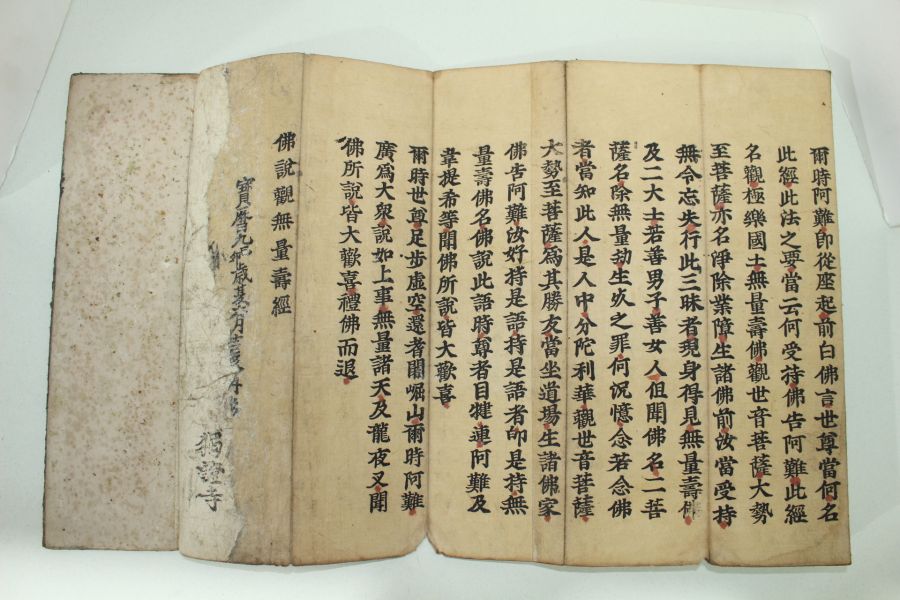 爾時阿難即從座起前白佛言世尊當何名
此經此法之要當云何受持佛告阿難此經
名觀極樂國土無量壽佛觀世音菩薩大勢
至菩薩亦名淨除業障生諸佛前汝當受持
無令忘失行此三昧者現身得見無量壽佛
及二大士若善男子善女人但聞佛名二菩
薩名除無量劫生死之罪何況憶念若念佛
者當知此人是人中分陀利華觀世音菩薩
大勢至菩薩為其勝友當坐道場生諸佛家
佛告阿難汝好持是語持是語者即是持無
量壽佛名佛說此語時尊者目犍連阿難及
韋提希等聞佛所說皆大歡喜
爾時世尊足步虛空還耆闍崛山爾時阿難
廣為大眾說如上事無量諸天及龍夜叉聞
佛所說皆大歡喜禮佛而退
佛說觀無量壽經
寶曆九己卯歲
寺